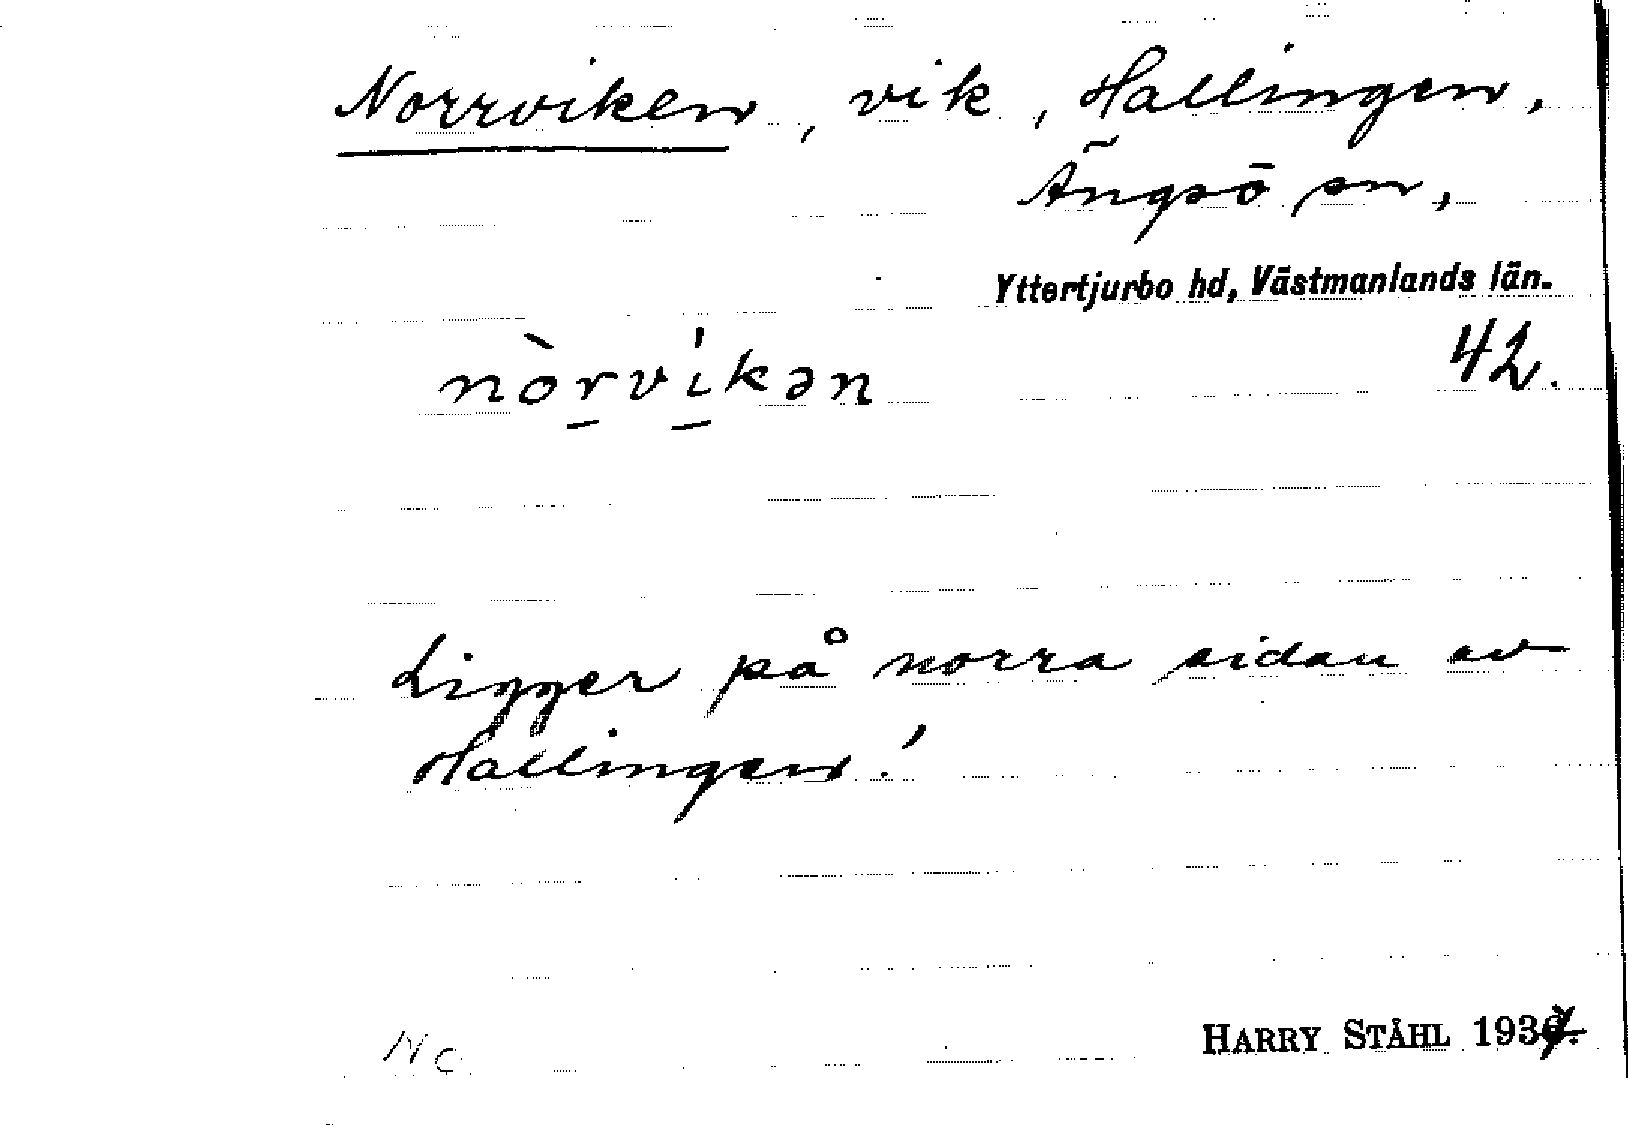 Norrviken, vik, Hallingen,
Ängsö sn,
Yttertjurbo hd, Västmanlands län.
nòrvíkən 42.
Ligger på norra sidan av
Hallingen!
Nc HARRY STÅHL 1937.